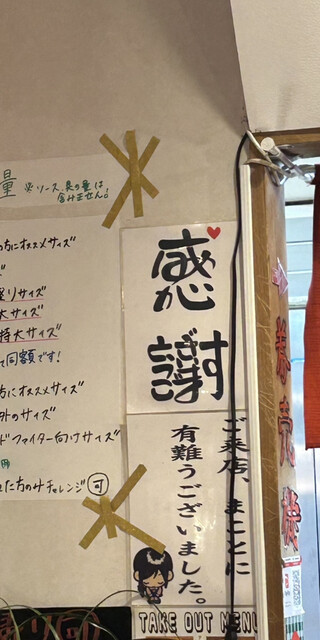 量 ※ソース、具の量は
含みません!
方にオススメサイズ
りサイズ
大サイズ
特大サイズ
て同額です!
方にオススメサイズ
外のサイズ
ドファイター向けサイズ
た方のみチャレンジ 可
感謝
ご来店、まことに
有難うございました。
TAKE OUT MENU
券売機